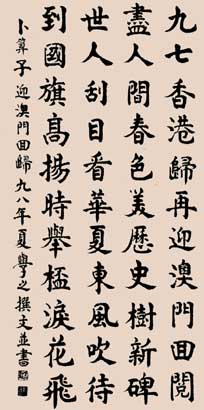 九七香港歸再迎澳門回閱
盡人間春色美歷史樹新碑
世人刮目看華夏東風吹待
到國旗高揚時舉極淚花飛
卜算子迎澳門回歸九八年夏學之撰文並書